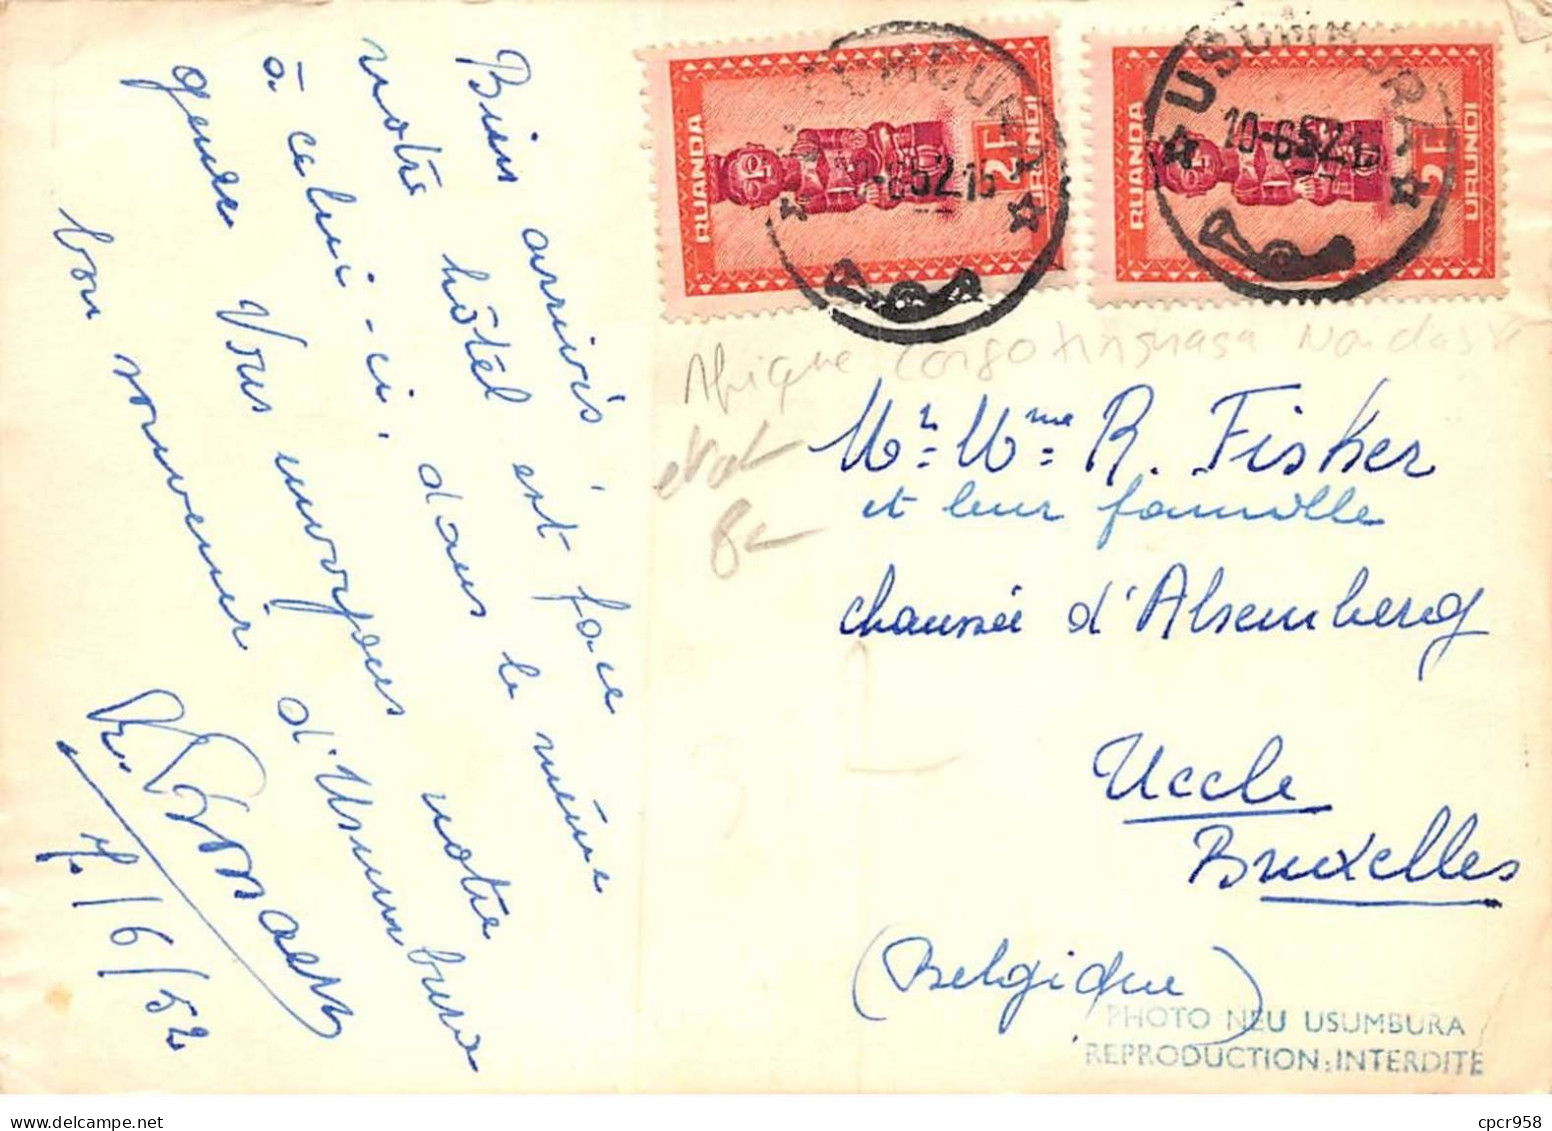 Bien arrivés
notre hôtel est face
à celui-ci. dans le même
genre Vous envoyons notre
bon souvenir d'Usumbura
7/6/52
RUANDA
2F
URUNDI
10-6 52.15
USUMBURA
10-6 52.15
RUANDA
2F
URUNDI
Afrique Congo Kinshasa
etat
8e
Mr = Mme = R. Fisker
et leur famille
chaussée d'Alsemberg
Uccle
Bruxelles
(Belgique)
PHOTO NEU USUMBURA
REPRODUCTION INTERDITE
www.delcampe.net
cpcr958